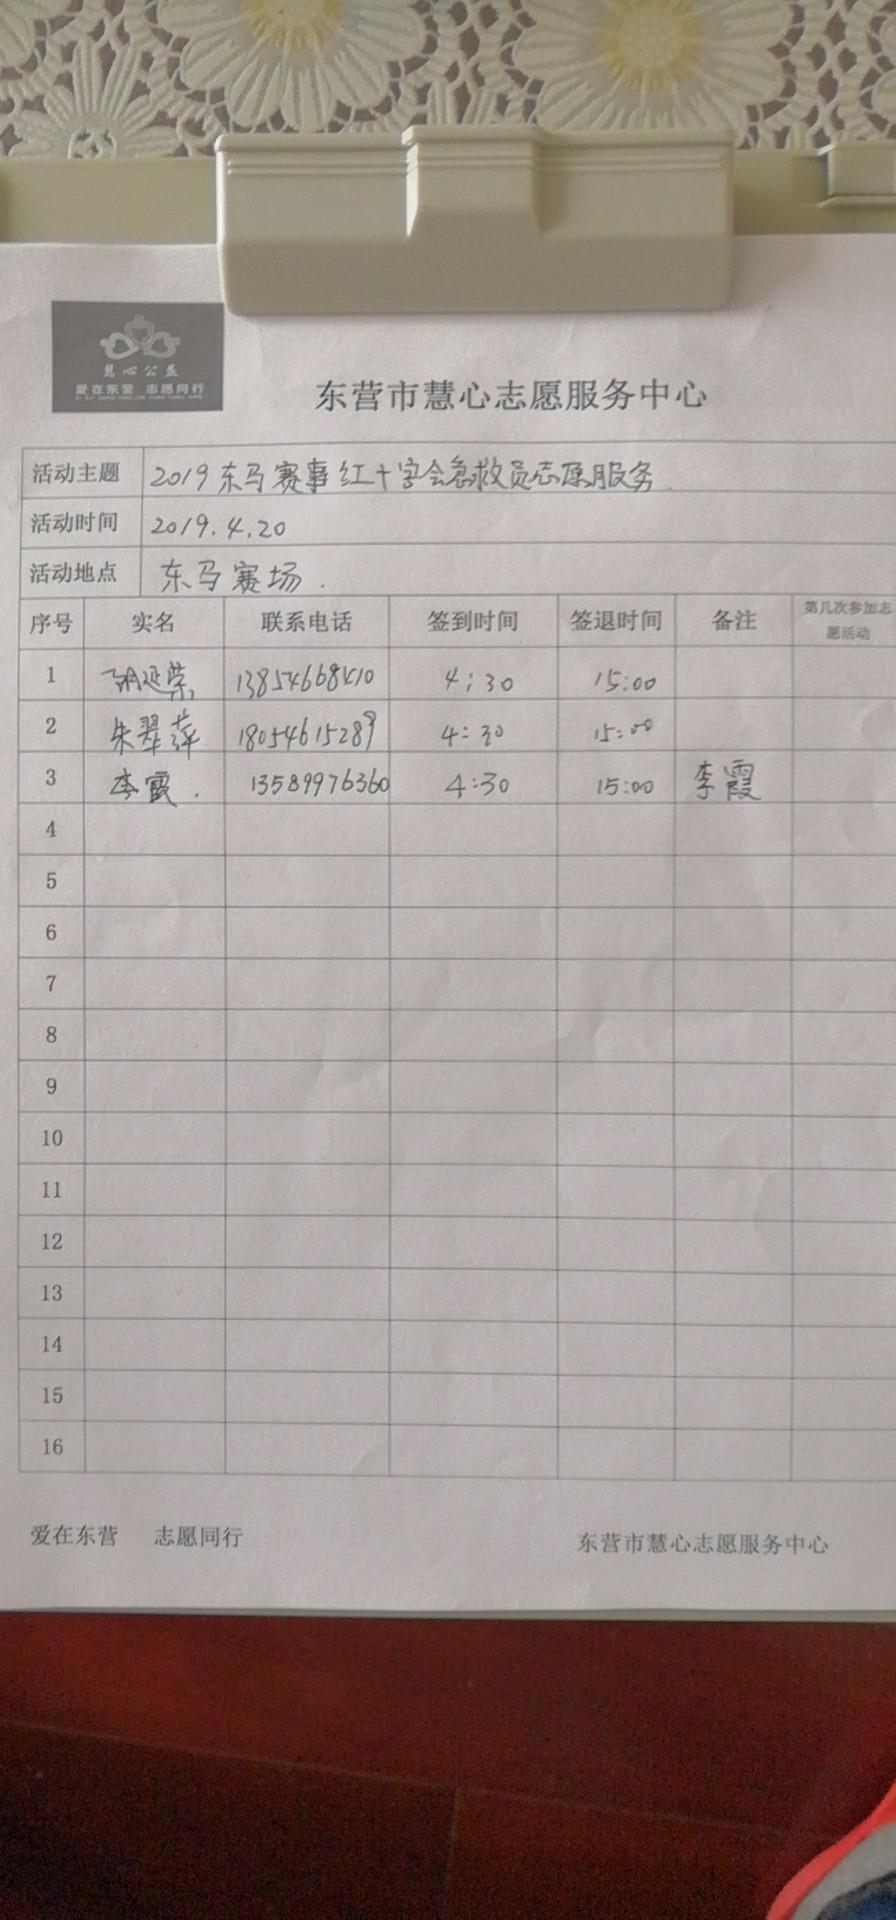 慧心公益
爱在东营 志愿同行
东营市慧心志愿服务中心
活动主题 2019东马赛事红十字会急救员志愿服务
活动时间 2019.4.20
活动地点 东马赛场.
序号 实名 联系电话 签到时间 签退时间 备注 第几次参加志愿活动
1 胡延荣 4:30 15:00
2 朱翠萍 18054615289 4:30 15:00
3 李霞. 13589976360 4:30 15:00 李霞
4
5
6
7
8
9
10
11
12
13
14
15
16
爱在东营 志愿同行 东营市慧心志愿服务中心